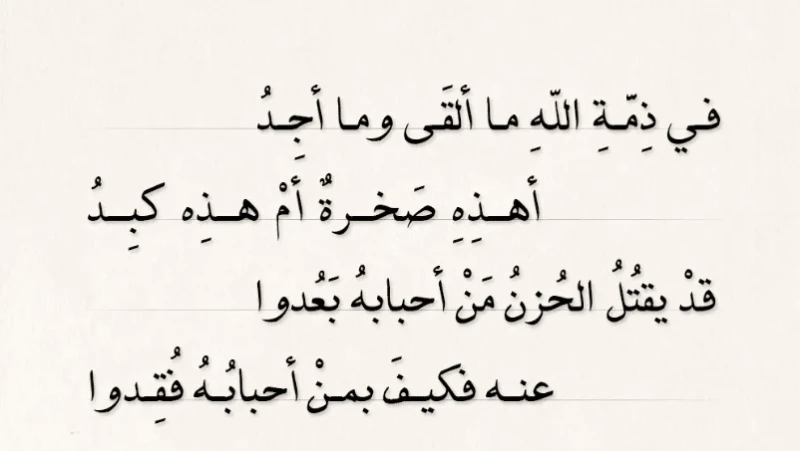 في ذِمّةِ اللّهِ ما ألقَى وما أجِدُ
أهذِهِ صَخرةٌ أمْ هذِه كبِدُ
قدْ يقتُلُ الحُزنُ مَنْ أحبابهُ بَعُدوا
عنه فكيفَ بمنْ أحبابُهُ فُقِدوا